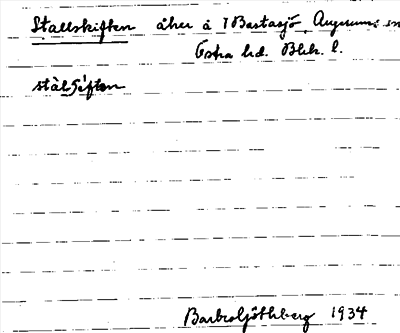 Stallskiften åker å 1 Bastasjö, Augerums sn
Östra hd. Blek. l.
Barbro Göthberg 1934